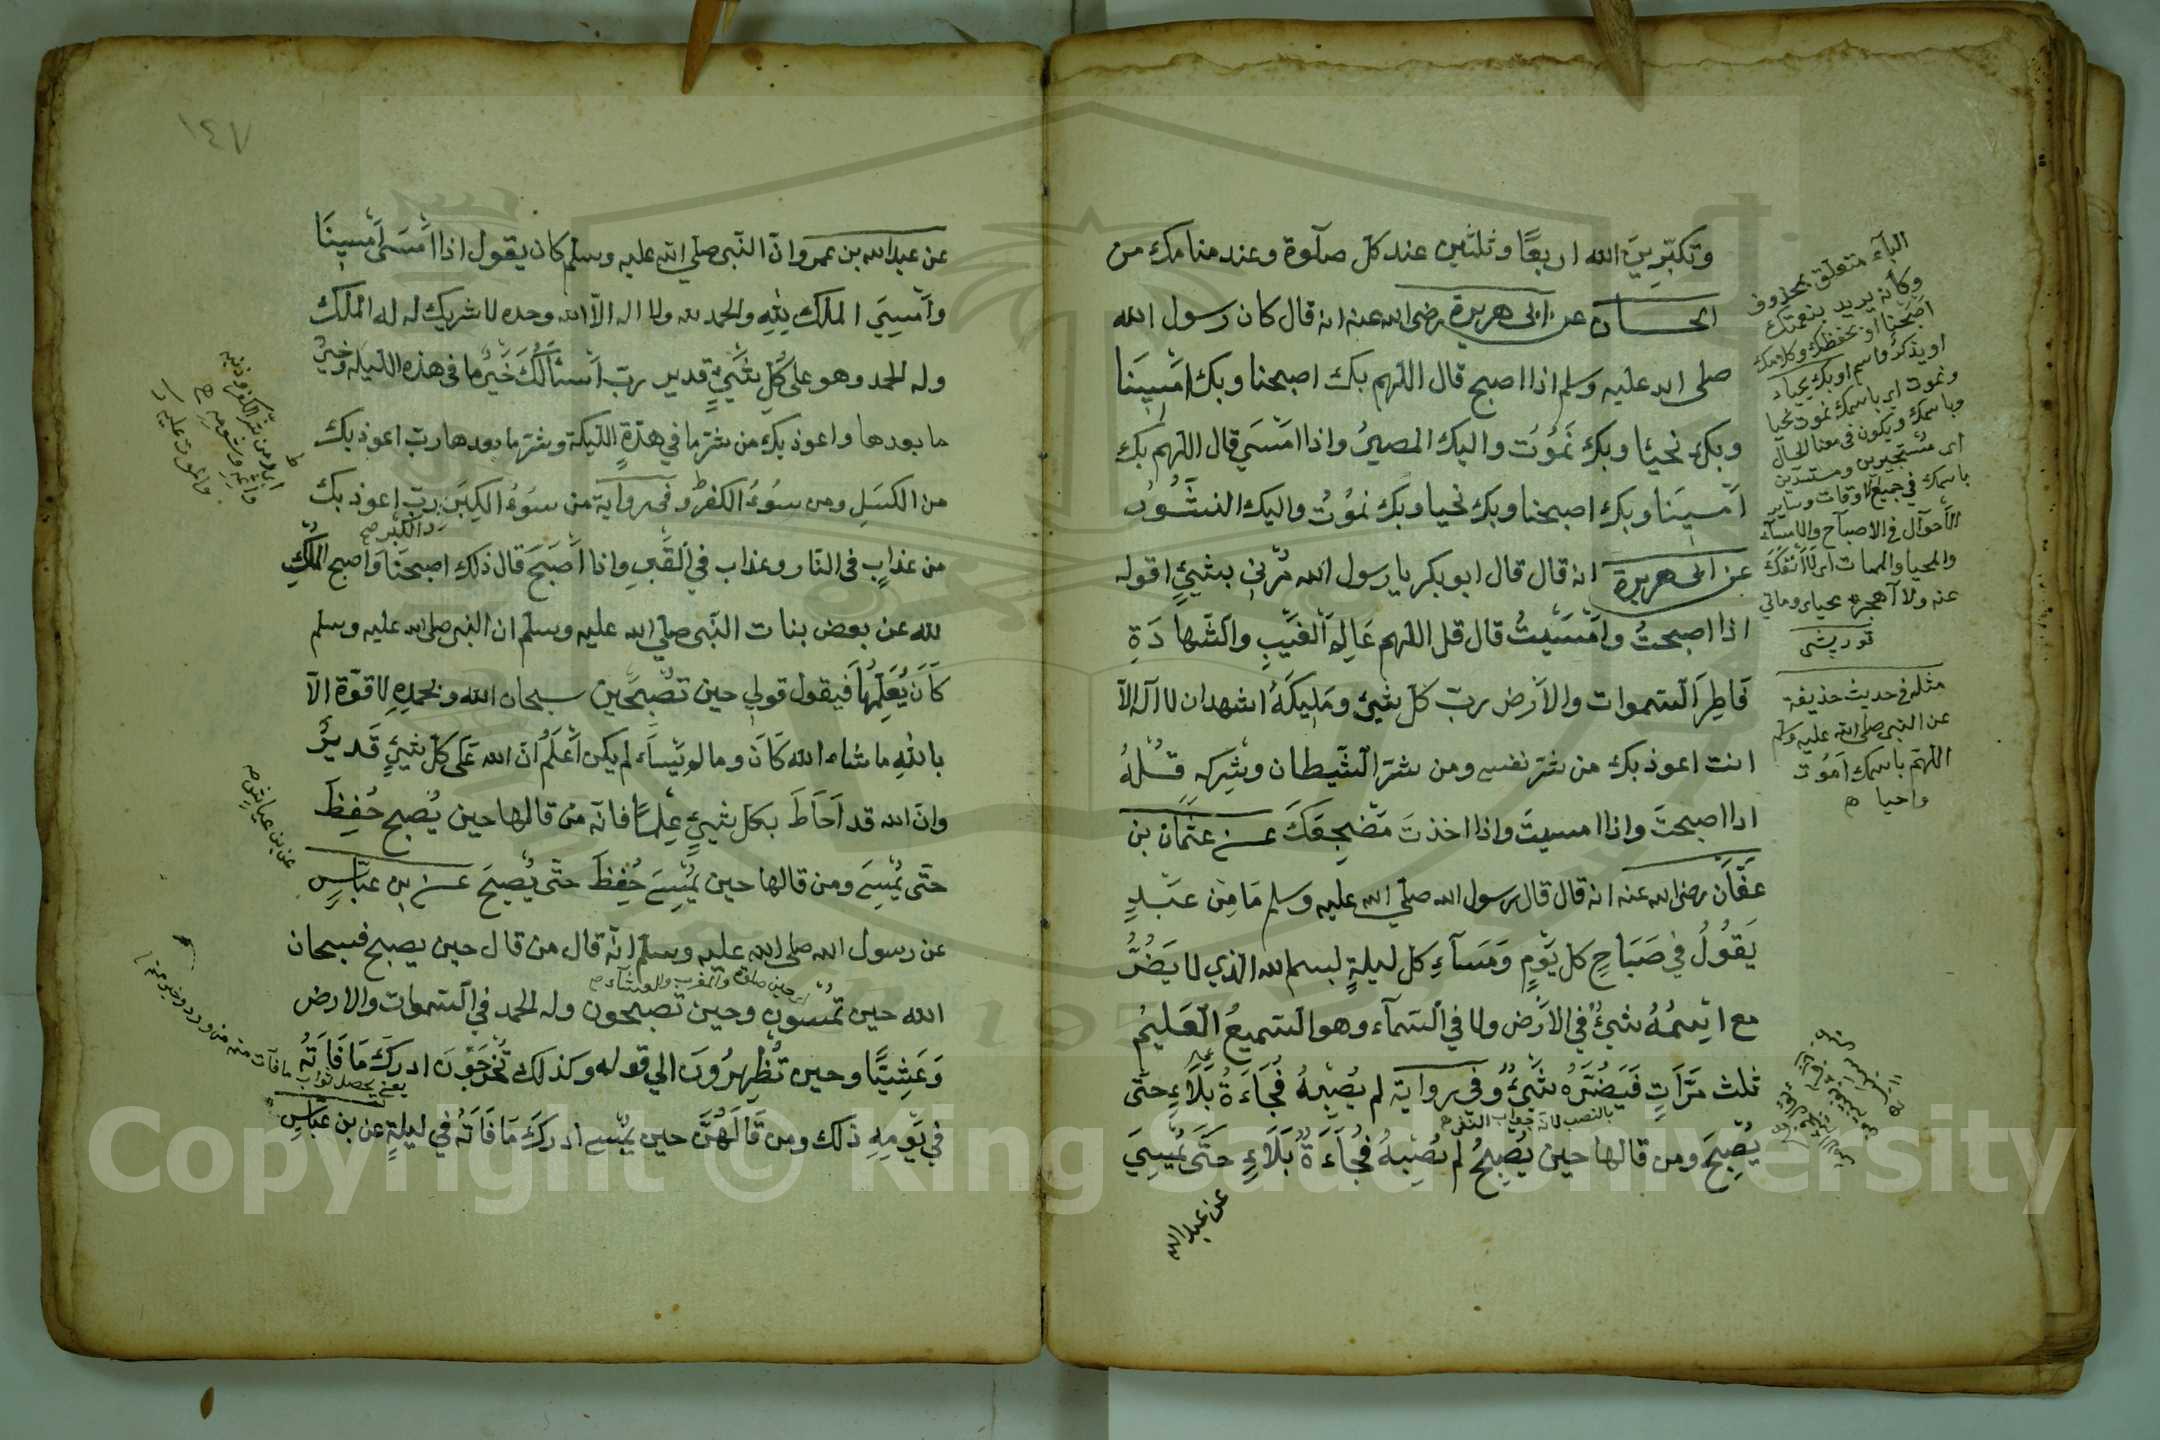 وتكبّرين الله اربعًا وثلثين عند كلّ صلوة وعند منامك من
الحسان عن ابى هريرة رضى الله عنه انه قال كان رسول الله
صلى الله عليه وسلم اذا اصبح قال اللهم بك اصبحنا وبك امسينا
وبك نحيا وبك نموت واليك المصير واذا امسى قال اللهم بك
امسينا وبك اصبحنا وبك نحيا وبك نموت واليك النشور
عن ابى هريرة انه قال قال ابو بكر يا رسول الله مرنى بشيئ اقوله
اذا اصبحتُ وامسيتُ قال قل اللهم عالم الغيب والشهادة
فاطر السموات والارض ربّ كلّ شيئ ومليكه اشهد ان لا اله الا
انت اعوذ بك من شرّ نفسى ومن شرّ الشيطان وشركه قله
اذا اصبحت واذا امسيت واذا اخذت مضجعك عن عثمان بن
عفّان رضى الله عنه انه قال قال رسول الله صلى الله عليه وسلم ما من عبد
يقول في صباح كل يوم ومساء كل ليلة بسم الله الذي لا يضرّ
مع اسمه شيئ في الارض ولا في السماء وهو السميع العليم
ثلث مرّات فيضرّه شيئ وفى رواية لم يصبه فجاءة بلاء حتى
بالنصب لانه جواب النفى
يصبح ومن قالها حين يصبح لم يصبه فجاءة بلاء حتى يمسي
عن عبد الله
الباء متعلق بمحذوف
وكانه يريد بنعمتك
اصبحنا او بحفظك وكلاءتك
او بذكرك واسمك
ونموت اى باسمك نموت
وباسمك ويكون فى معنى الحال
اى مستجيرين
باسمك في جميع الاوقات وساير
الاحوال فى الاصباح والامساء
والمحيا والممات اى لا انفك
عنه ولا اهجره محياى ومماتى
تورپشتى
مثله فى حديث حذيفة
عن النبى صلى الله عليه وسلم
اللهم باسمك اموت
واحيا
١٤٧
عن عبد الله بن عمر وانّ النبى صلى الله عليه وسلم كان يقول اذا امسى امسينا
وامسى الملك لله والحمد لله ولا اله الّا الله وحده لا شريك له له الملك
وله الحمد وهو على كلّ شيئ قدير ربّ اسئالك خير ما فى هذه الليلة وخير
ما بعدها واعوذ بك من شرّ ما في هذه الليلة وشرّ ما بعدها ربّ اعوذ بك
من الكسل ومن سوء الكفر وفى رواية من سوء الكبر ربّ اعوذ بك
والكبر صح
من عذاب فى النار وعذاب في القبر واذا اصبح قال ذلك اصبحنا واصبح الملك
لله عن بعض بنات النبى صلي الله عليه وسلم ان النبى صلى الله عليه وسلم
كان يعلّمها فيقول قولى حين تصبحين سبحان الله وبحمده لا قوّة الّا
بالله ما شاء الله كان وما لم يشاء لم يكن أعلم انّ الله على كلّ شيئ قدير
وانّ الله قد احاط بكل شيئ علما فانّه من قالها حين يصبح حفظ
حتّى يمسى ومن قالها حين يمسى حفظ حتّى يصبح عن ابن عبّاس
عن رسول الله صلى الله عليه وسلم انّه قال من قال حين يصبح فسبحان
اى حين صلوة المغرب والعشاء
الله حين تمسون وحين تصبحون وله الحمد في السموات والارض
وعشيّا وحين تظهرون الي قوله وكذلك تخرجون ادرك ما فاته
يعنى يحصل ثواب ما فات منه من ورد
في يومه ذلك ومن قالهنّ حين يمسى ادرك ما فاته في ليلة عن بن عبّاس
اى من شرّ الكفر
عن بن عياش